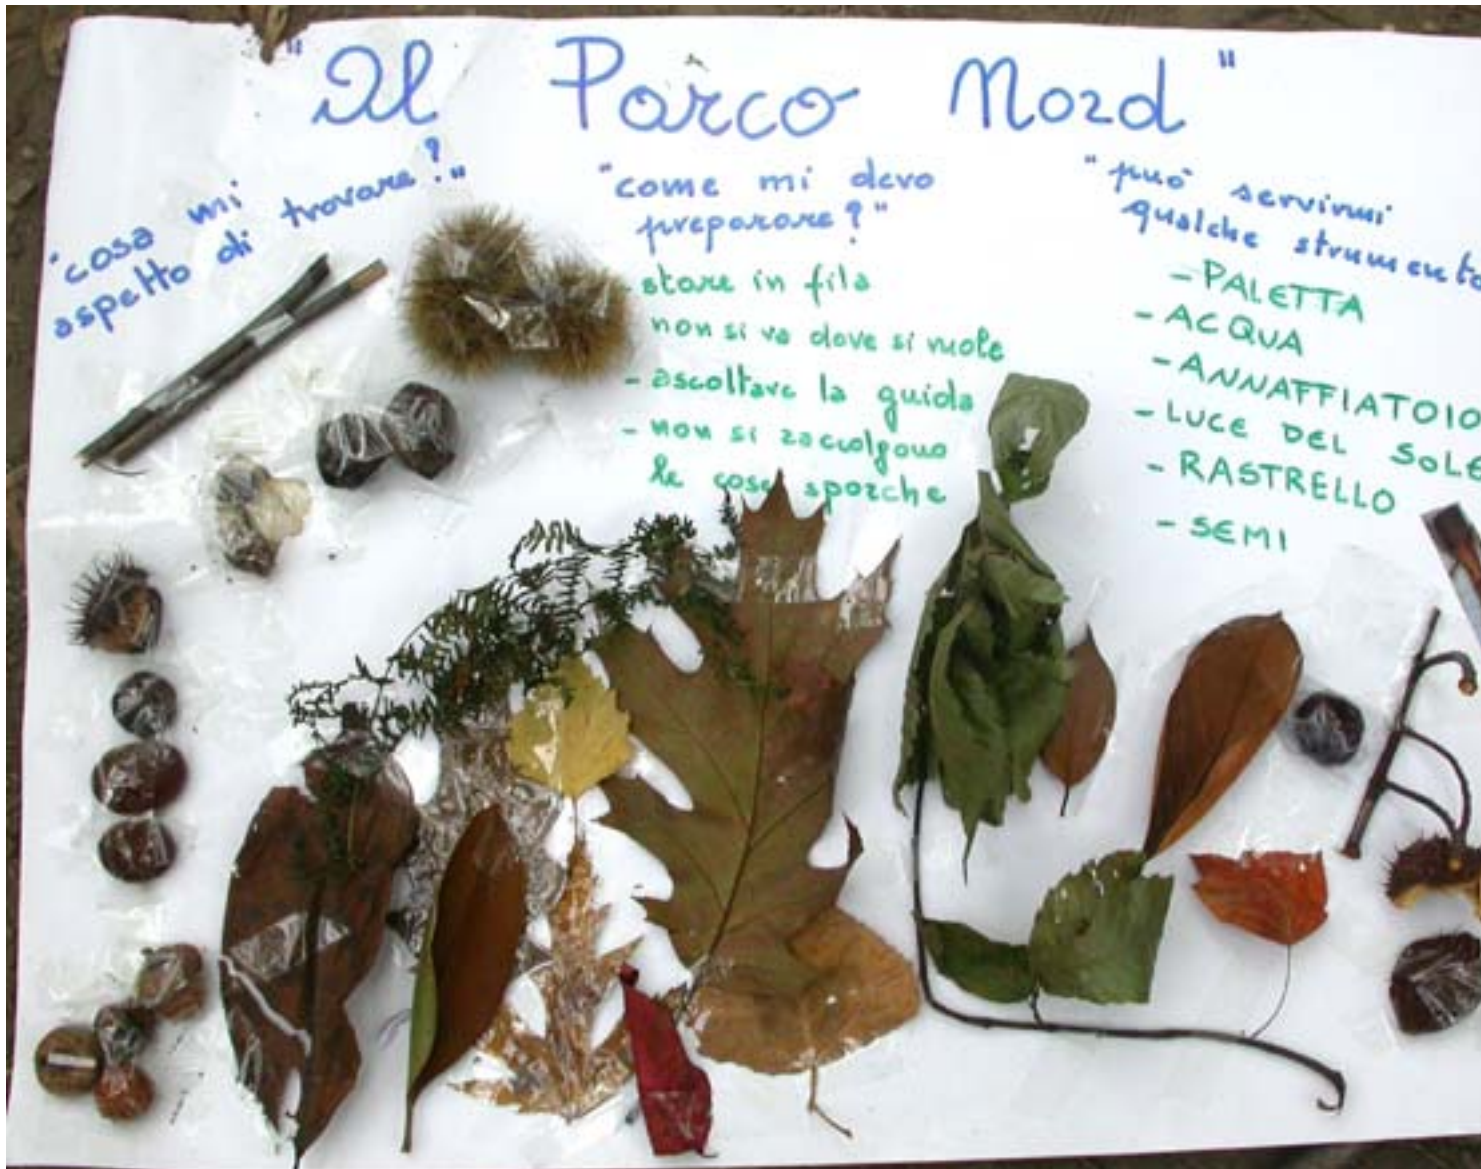 "Il Parco Nord"
"cosa mi
aspetto di trovare?"
"come mi devo
preparare?"
- stare in fila
non si va dove si vuole
- ascoltare la guida
- non si raccolgono
le cose sporche
"può servirmi
qualche strumento
- PALETTA
- ACQUA
- ANNAFFIATOIO
- LUCE DEL SOLE
- RASTRELLO
- SEMI